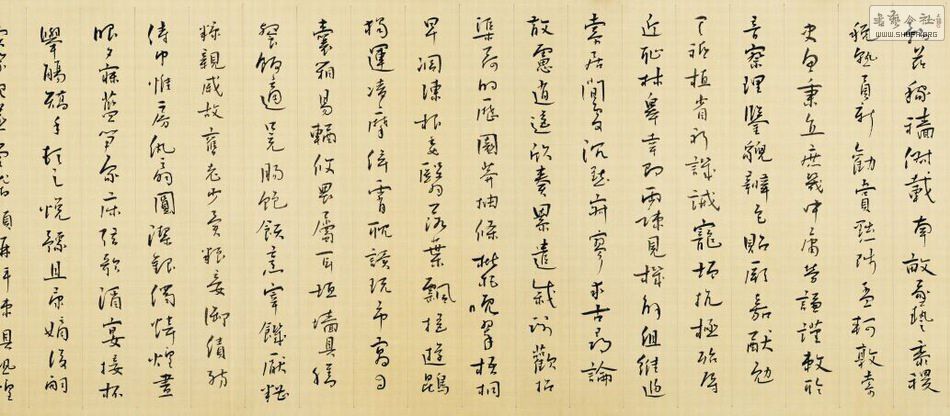 書藝公社
WWW.SHUFA.ORG
茲稼穡俶載南畝我藝黍稷
稅熟貢新勸賞黜陟孟軻敦素
史魚秉直庶幾中庸勞謙謹敕聆
音察理鑒貌辨色貽厥嘉猷勉
其祗植省躬譏誡寵增抗極殆辱
近恥林皋幸即兩疏見機解組誰逼
索居閒處沉默寂寥求古尋論
散慮逍遙欣奏累遣慼謝歡招
渠荷的歷園莽抽條枇杷晚翠梧桐
早凋陳根委翳落葉飄颻遊鵾
獨運凌摩絳霄耽讀玩市寓目
囊箱易輶攸畏屬耳垣牆具膳
餐飯適口充腸飽飫烹宰飢厭糟
糠親戚故舊老少異糧妾御績紡
侍巾帷房紈扇圓潔銀燭煒煌晝
眠夕寐藍筍象床弦歌酒宴接杯
舉觴矯手頓足悅豫且康嫡後嗣